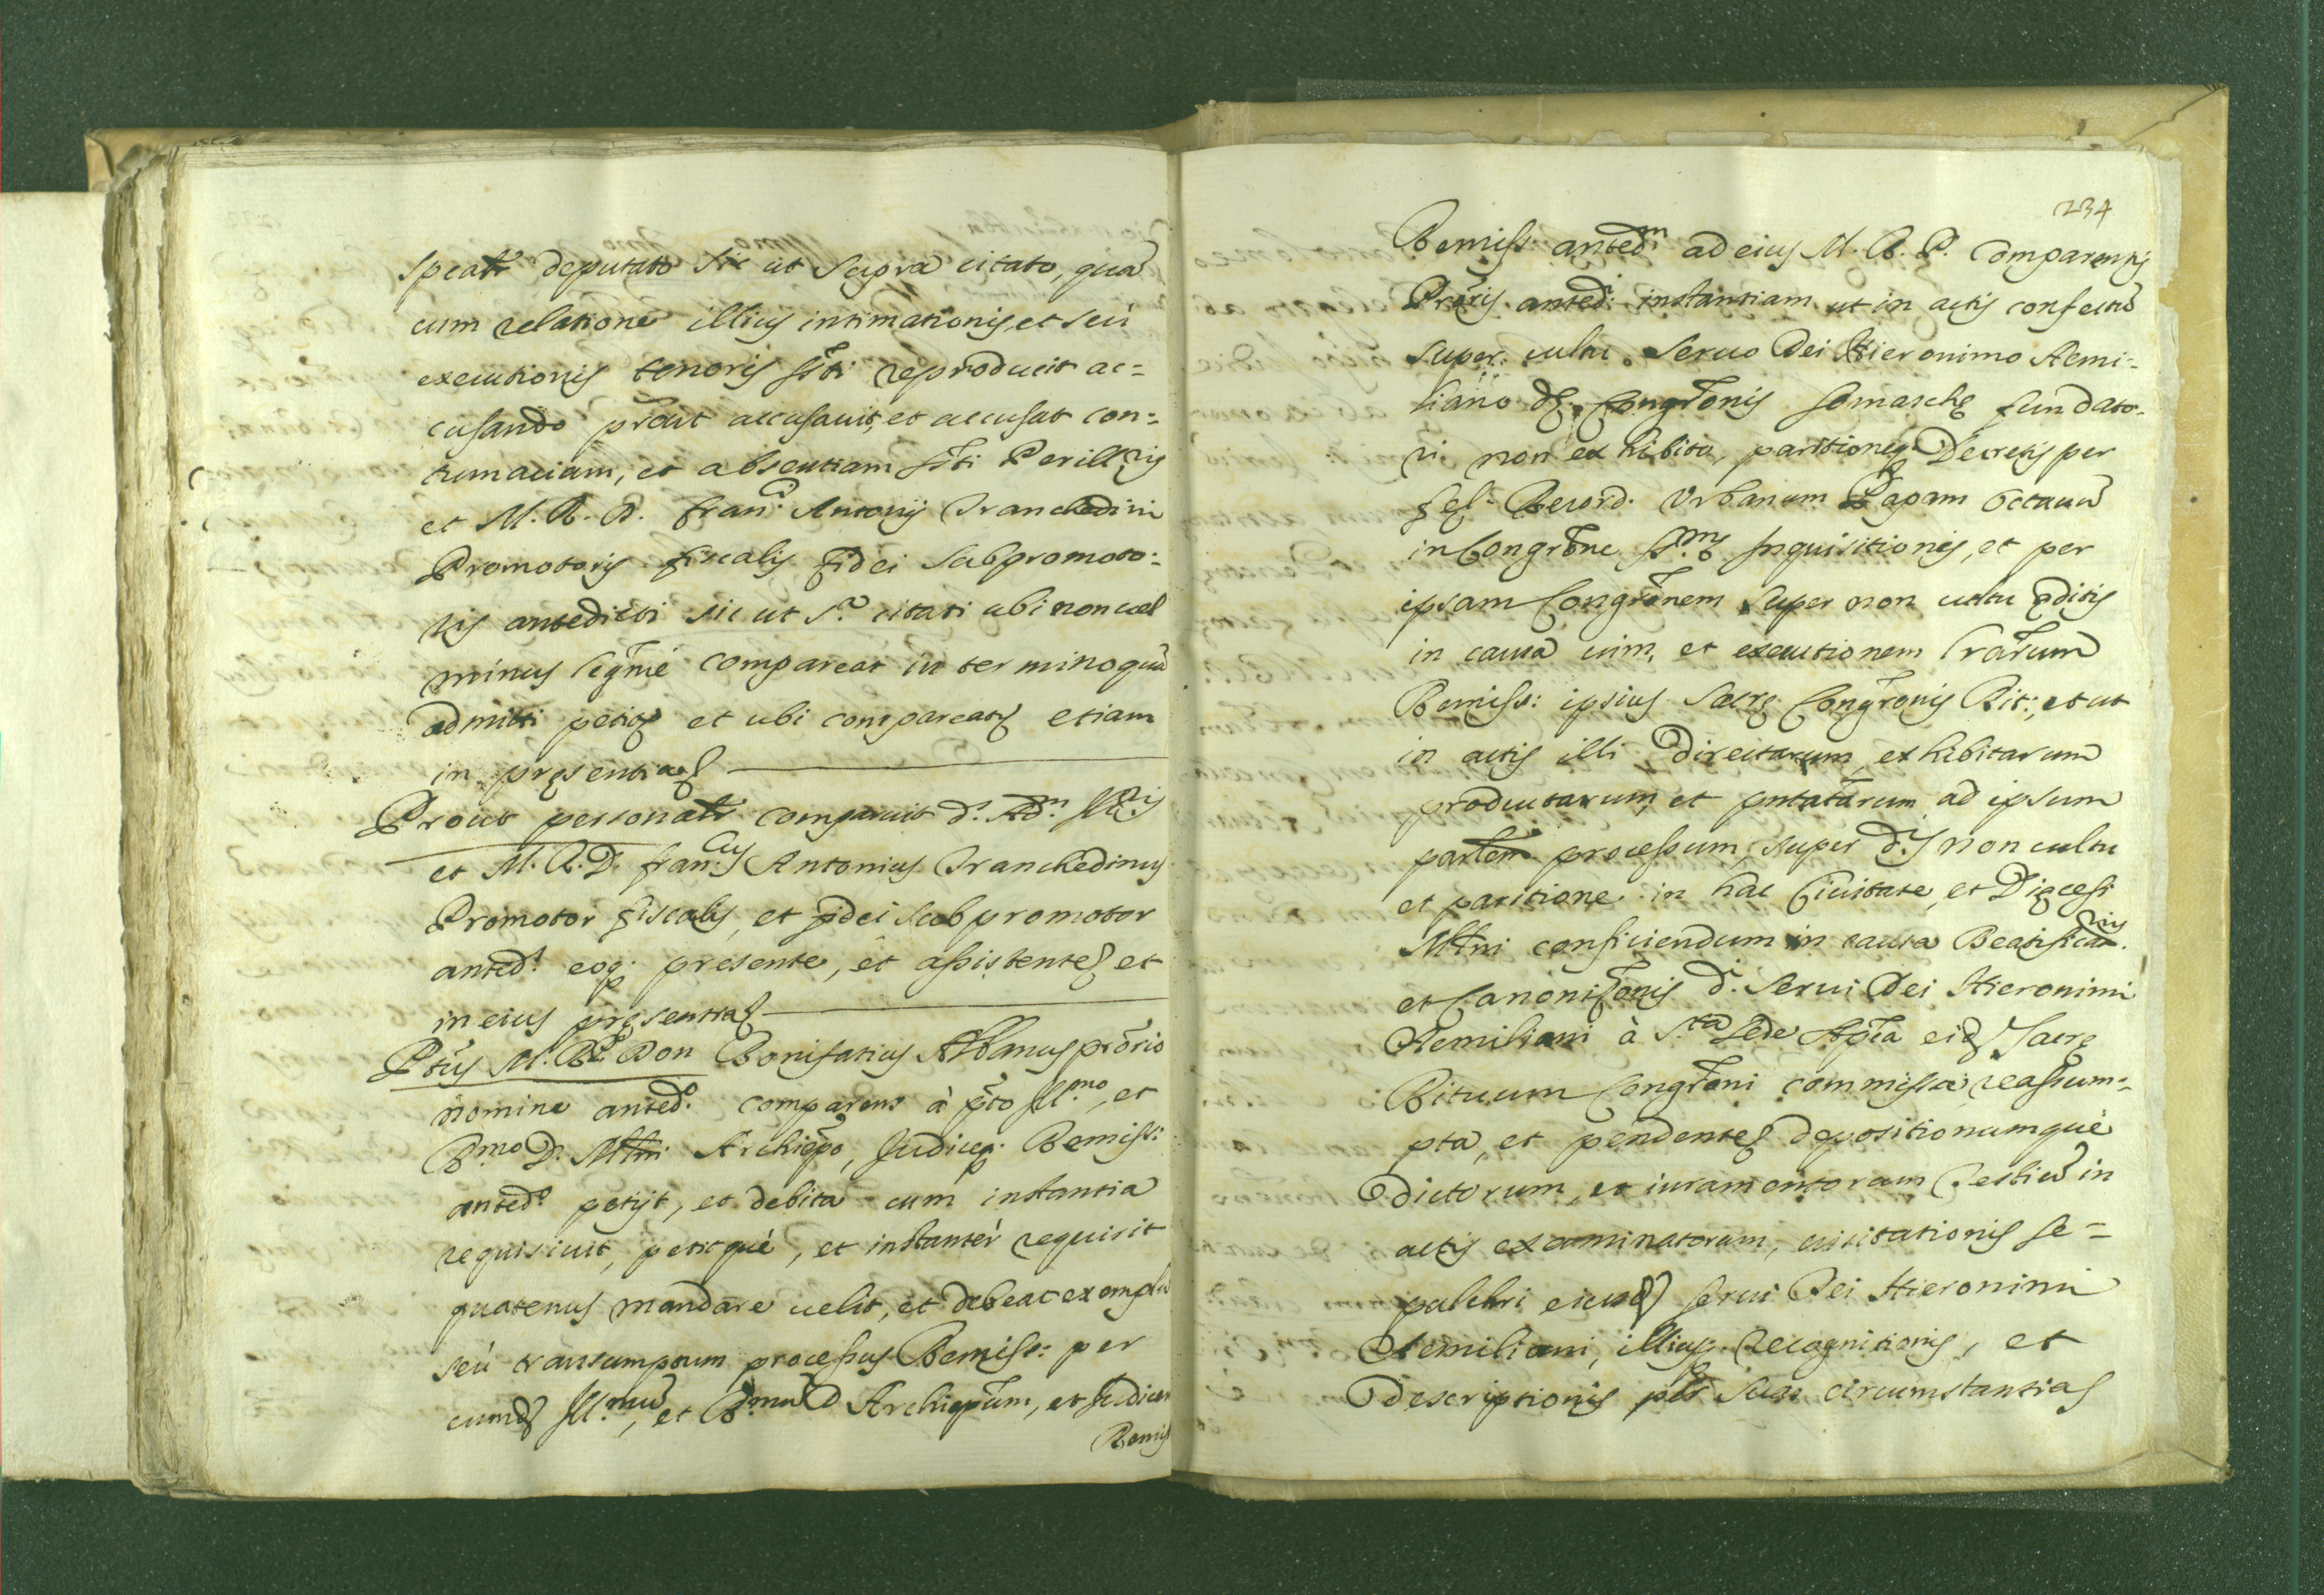 speatr deputato sic ut supra citato, qua
cum relatione illius intimationis, et seù
executionis tenoris sti reproducit ac=
cusando prout accusavit, et accusat con=
tumaciam, et absentiam Perillris
et M. R. D. Franci Antonij Tranchedini
Promotoris fiscalis fidei subpromoto=
ris antedicti sic ut sa citati ubi non vel
minus legme compareat in termino quem
admitti petiq et ubi compareatq etiam
in presentiaq
Prout personalr comparuit d. Adm Illris
et M. R. D. Francus Antonius Tranchedinus
Promotor fiscalis, et fidei subpromotor
anted. eoq. presente, et assistenteq et
in eius presentiaq
Ptus M. R. P. Don Bonifatius Albanus prorio
nomine anted. comparens à pto Illmo, et
Rmo D. Mlni Archiepo, Judiceq. Remiss:
anted petijt, et debita cum instantia
requisivit, petitquè, et instantèr requirit
quatenus mandare velit, et debeat exempla
seù transumptum processus Remiss: per
eumdq Illmum, et Rmum D Archiepum, et Judicem
Remiss
234
Remiss: antedm ad eius M. R. P. Comparentis
Proris anted. instantiam ut in actis confectum
super cultu Servo Dei Hieronimo Aemi=
liano de Congronis Somasche fundato-
ri non exhibito, paritioneq. Decretis per
fel. Record. Urbanum Papam Octavum
in Congrone Sme Inquisitionis, et per
ipsam Congronem super non cultu editis
in causa vim, et executionem Lrarum
Remiss: ipsius Sacre Congronis Rit:, et ut
in actis illi directarum, exhibitarum
productarum, et pntatarum ad ipsum
partem processum, super d.s non cultu
et paritione in hac Civitate, et Diecesi
Mlni conficiendum in causa Beatificanis
et Canonizonis d. Servi Dei Hieronimi
Aemiliani à Sta Sede Apca eidq Sacre
Rituum Congroni commissa, reassum=
pta, et pendenteq depositionumquè
dictorum, et iuramentorum Testium in
actis examinatorum, visitationis se=
pulchri eiusdq Servi Dei Hieronimi
Aemiliani, illiusq. recognitionis, et
descriptionis per suas circumstantias